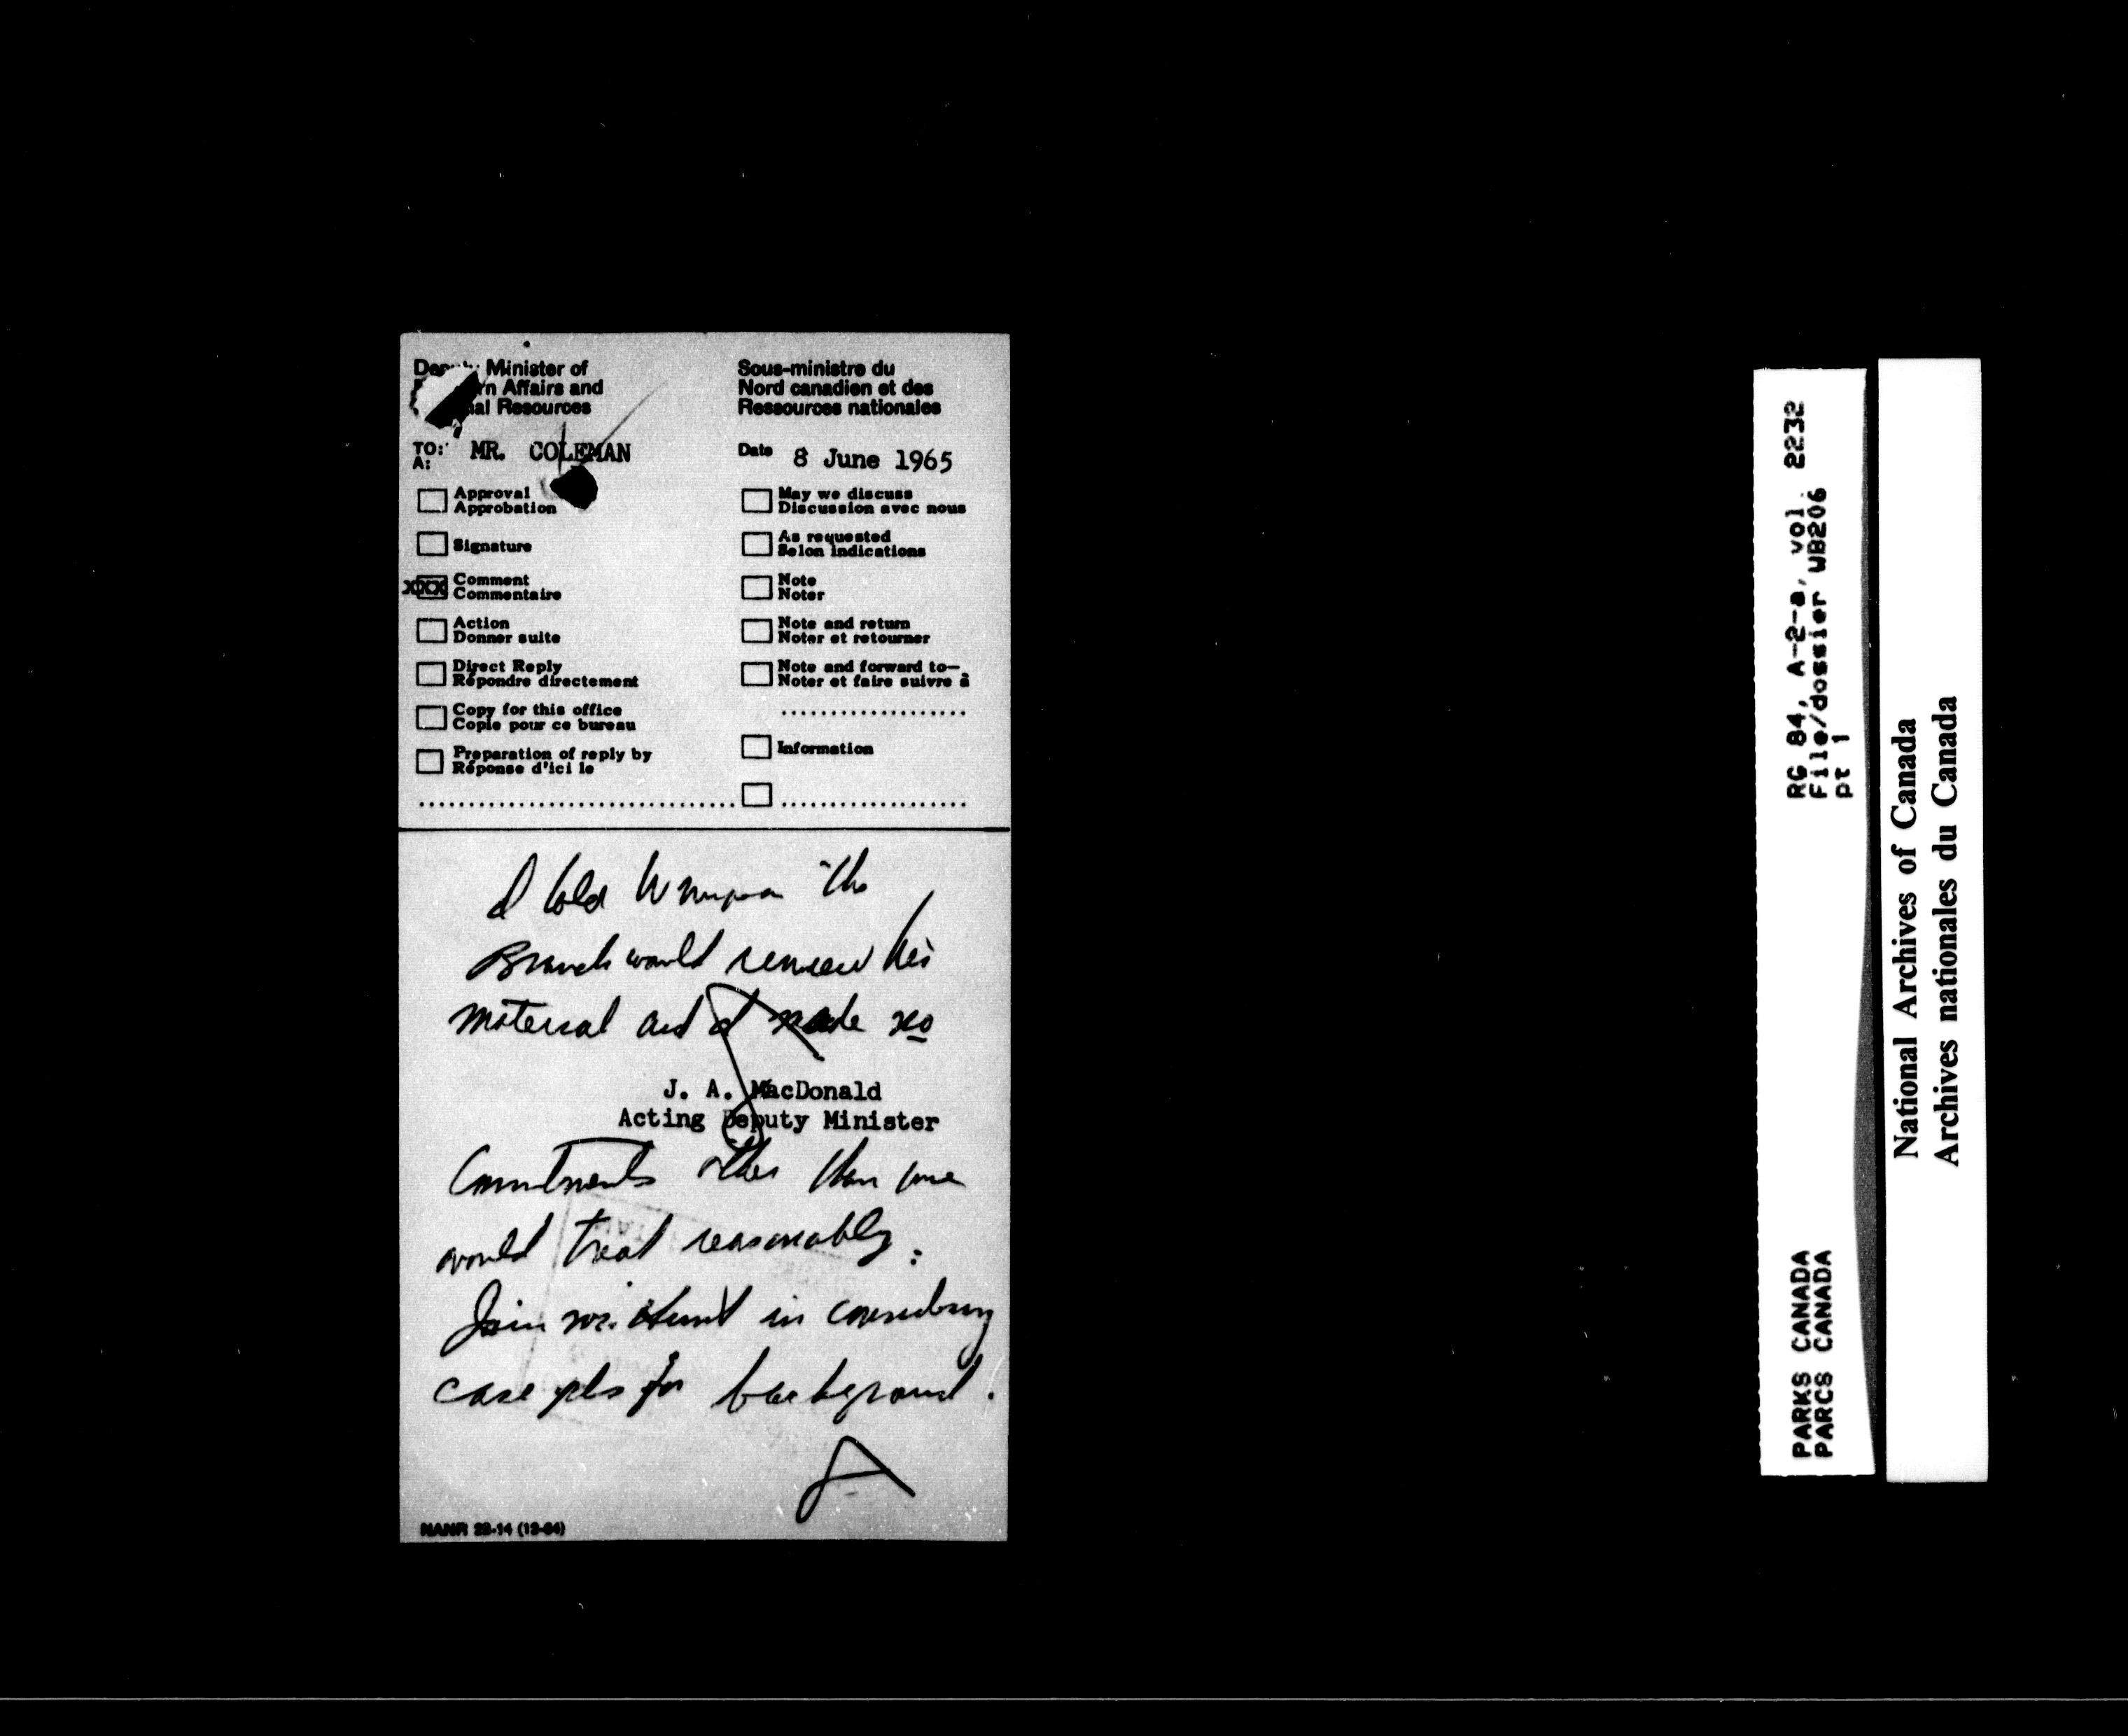 Deputy Minister of
Northern Affairs and
National Resources
Sous-ministre du
Nord canadien et des
Ressources nationales
TO: MR. COLEMAN
A:
Date 8 June 1965
Approval
Approbation
Signature
XXX Comment
Commentaire
Action
Donner suite
Direct Reply
Répondre directement
Copy for this office
Copie pour ce bureau
Preparation of reply by
Réponse d'ici le
May we discuss
Discussion avec nous
As requested
Selon indications
Note
Noter
Note and return
Noter et retourner
Note and forward to—
Noter et faire suivre à
Information
I told the
Branch would review his
material and I made no
J. A. MacDonald
Acting Deputy Minister
Commitments other than we
would treat reasonably.
Join Mr. Hunt in considering
case pls for background.
NANR 22-14 (12-64)
RG 84, A-2-a, vol. 2232
File/dossier WB206
pt 1
PARKS CANADA
PARCS CANADA
National Archives of Canada
Archives nationales du Canada